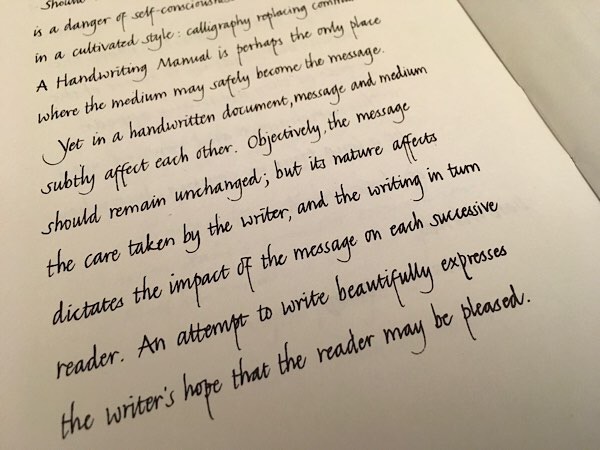 should
is a danger of self-conscious
in a cultivated style: calligraphy replacing
A Handwriting Manual is perhaps the only place
where the medium may safely become the message.
Yet in a handwritten document, message and medium
subtly affect each other. Objectively, the message
should remain unchanged; but its nature affects
the care taken by the writer, and the writing in turn
dictates the impact of the message on each successive
reader. An attempt to write beautifully expresses
the writer's hope that the reader may be pleased.